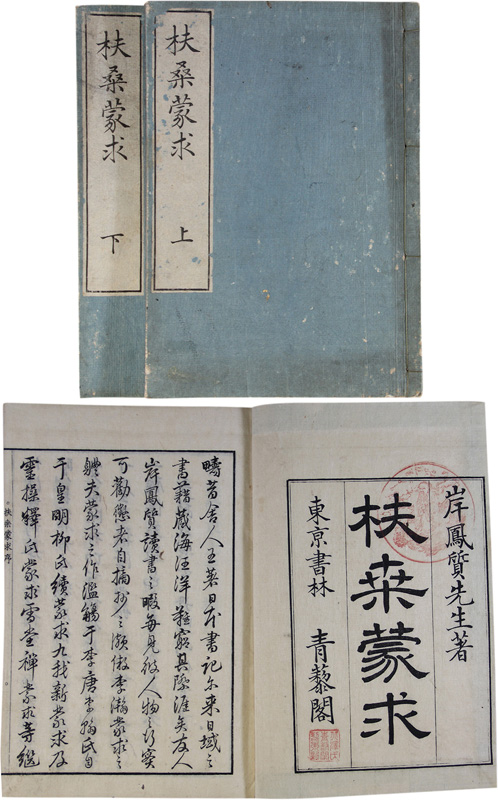 扶桑蒙求 上
扶桑蒙求 下
岸鳳質先生著
扶桒蒙求
東京書林 青藜閣
疇昔舍人王著日本書記尓来日域之
書籍藏海汪洋難窮其際涯矣友人
岸鳳質讀書之暇每見彼人物之行實
可勸懲者自摘抄之傚李瀚蒙求之
軆夫蒙求之作濫觴于李唐李瀚氏自
于皇明柳氏續蒙求九我新蒙求及
靈操釋氏蒙求雪堂禅蒙求等繼
扶桑蒙求序